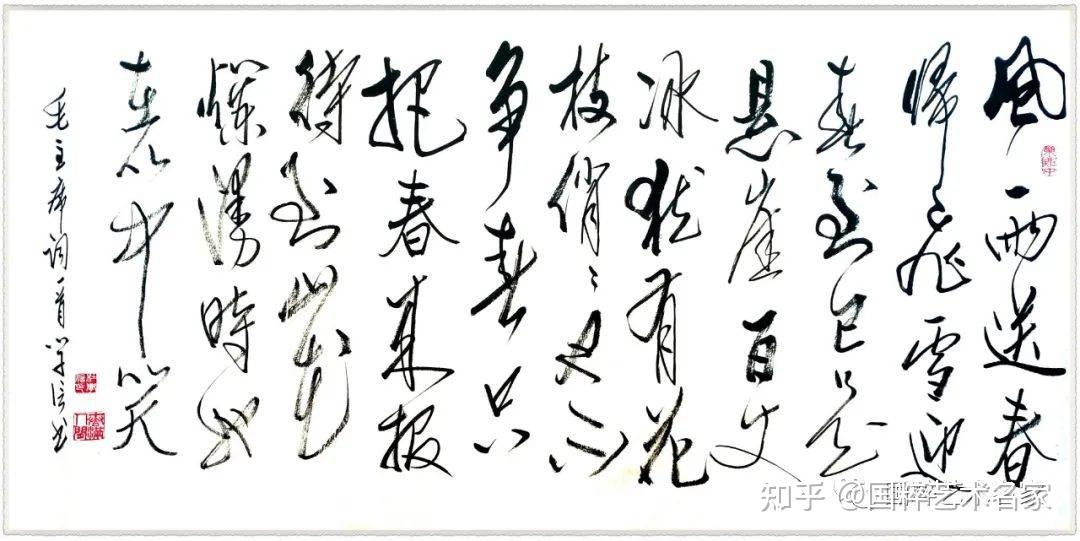 风雨送春
归飞雪迎
春到已是
悬崖百丈
冰犹有花
枝俏俏也不
争春只
把春来报
待到山花
烂漫時她
在丛中笑
毛主席词一首 学信书
知乎 @国粹艺术名家